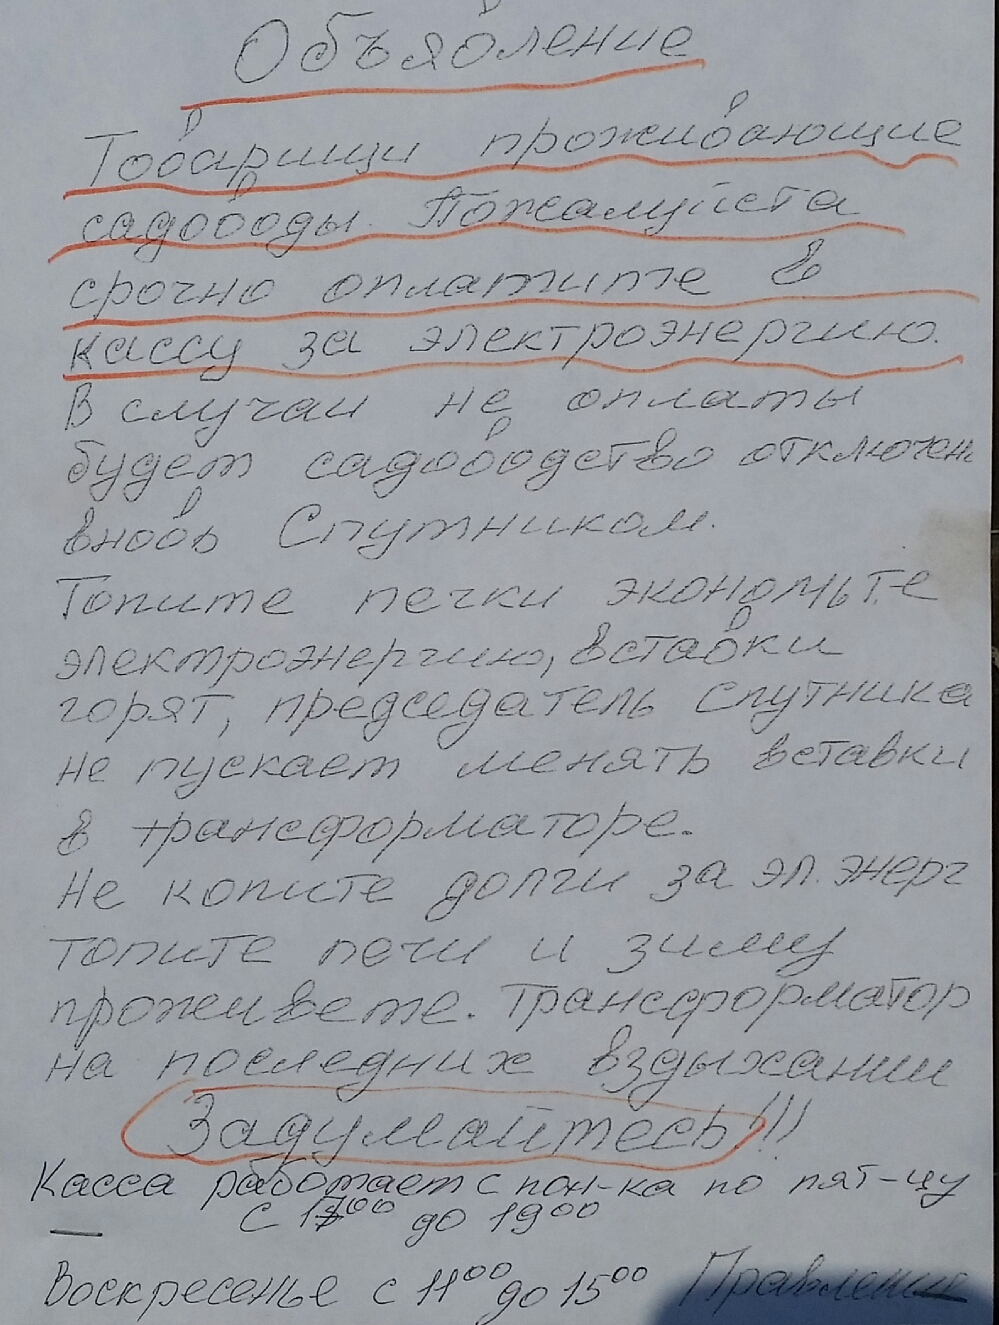 Объявление
Товарищи проживающие
садоводы. Пожалуйста
срочно оплатите в
кассу за электроэнергию.
В случаи не оплаты
будет садоводство отключен
вновь Спутником.
Топите печки экономьте
электроэнергию, вставки
горят, председатель Спутника
не пускает менять вставки
в трансформаторе.
Не копите долги за эл. энерг
топите печи и зиму
проживете. Трансформатор
на последних вздыхании
Задумайтесь!!!
Касса работает с пон-ка по пят-цу
с 17⁰⁰ до 19⁰⁰
Воскресенье с 11⁰⁰ до 15⁰⁰ Правление